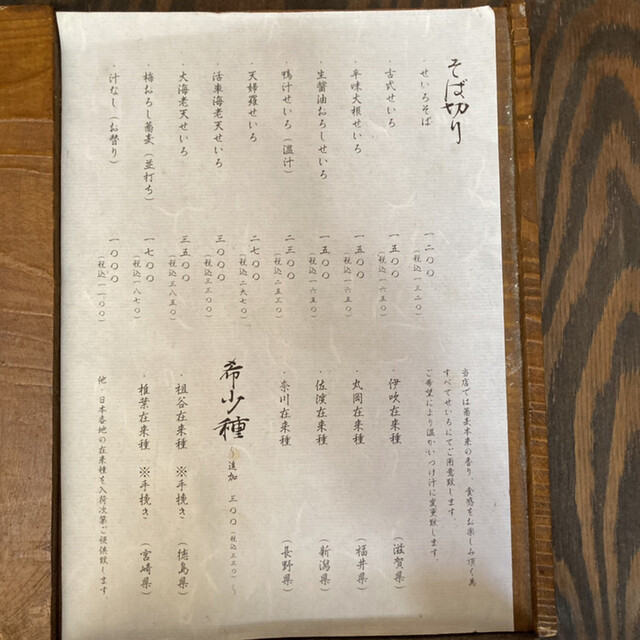 そば切り
・せいろそば 一二〇〇
（税込一三二〇）
・古式せいろ 一五〇〇
（税込一六五〇）
・辛味大根せいろ 一五〇〇
（税込一六五〇）
・生醤油おろしせいろ 一五〇〇
（税込一六五〇）
・鴨汁せいろ（温汁） 二三〇〇
（税込二五三〇）
・天婦羅せいろ 二七〇〇
（税込二九七〇）
・活車海老天せいろ 三〇〇〇
（税込三三〇〇）
・大海老天せいろ 三五〇〇
（税込三八五〇）
・梅おろし蕎麦（並打ち） 一七〇〇
（税込一八七〇）
・汁なし（お替り） 一〇〇〇
（税込一一〇〇）
当店では蕎麦本来の香り、食感をお楽しみ頂く為
すべてせいろにてご用意致します。
ご希望により温かいつけ汁に変更致します。
・伊吹在来種（滋賀県）
・丸岡在来種（福井県）
・佐渡在来種（新潟県）
・奈川在来種（長野県）
希少種〜追加 三〇〇（税込三三〇）〜
・祖谷在来種 ※手挽き（徳島県）
・椎葉在来種 ※手挽き（宮崎県）
他、日本各地の在来種を入荷次第ご提供致します。